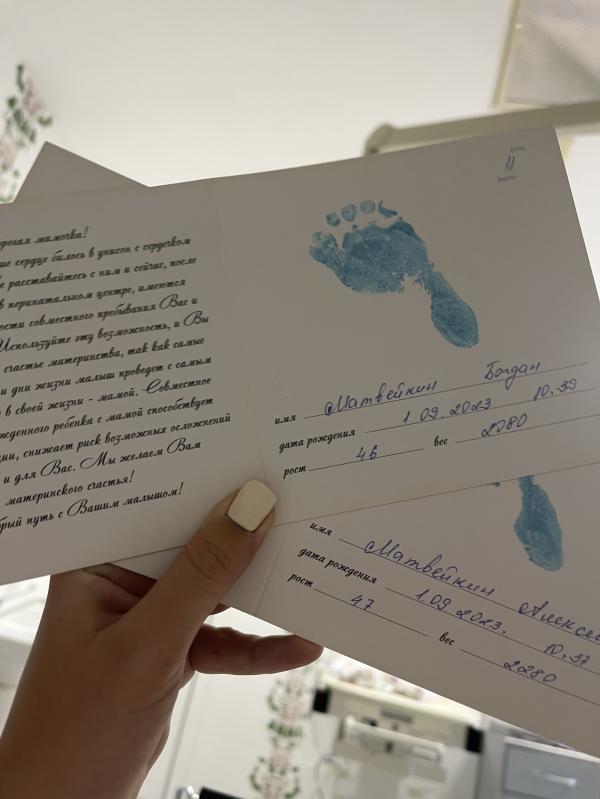 рогая мамочка!
ше сердце билось в унисон с сердечком
е расставайтесь с ним и сейчас, после
в перинатальном центре, имеются
ости совместного пребывания Вас и
Используйте эту возможность, и Вы
счастье материнства, так как самые
и дни жизни малыш проведет с самым
в своей жизни - мамой. Совместное
жденного ребенка с мамой способствует
ции, снижает риск возможных осложнений
и для Вас. Мы желаем Вам
материнского счастья!
брый путь с Вашим малышом!
II
имя Матвейкин Богдан
дата рождения 1 09 2023 10.39
рост 46 вес 2080
имя Матвейкин Алексе
дата рождения 1.09 2023. 10.37
рост 47 вес 2280